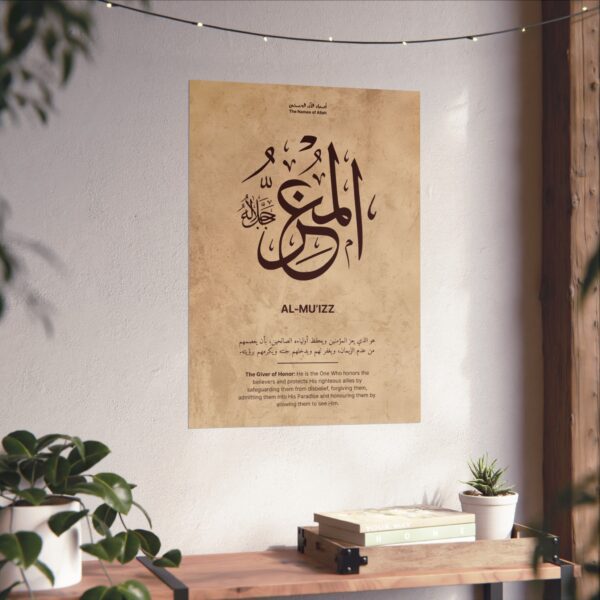 أسماء الله الحسنى
The Names of Allah
المُعِزُّ
جَلَّ جَلَالُهُ
AL-MU'IZZ
هو الذي يعز المؤمنين ويحفظ أولياءه الصالحين، بأن يعصمهم
من عدم الإيمان، ويغفر لهم ويدخلهم جنته ويكرمهم برؤيته.
The Giver of Honor: He is the One Who honors the
believers and protects His righteous allies by
safeguarding them from disbelief, forgiving them,
admitting them into His Paradise and honouring them by
allowing them to see Him.
HOME